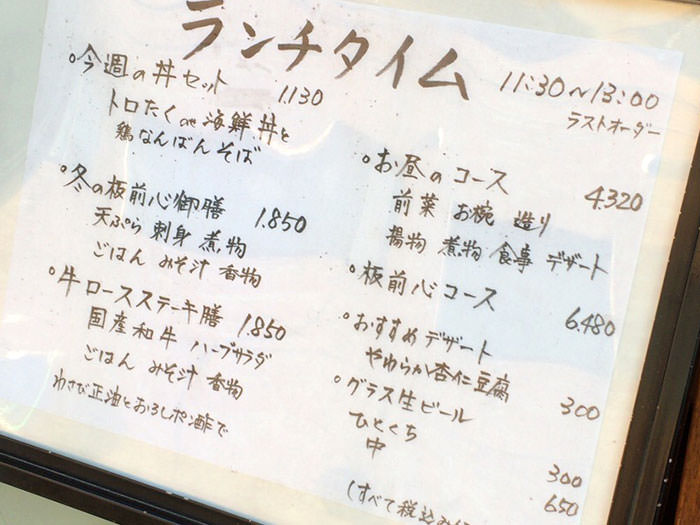 ランチタイム 11:30～13:00
ラストオーダー
今週の丼セット 1.130
トロたくの海鮮丼と
鶏なんばんそば
冬の板前心御膳 1.850
天ぷら 刺身 煮物
ごはん みそ汁 香物
牛ロースステーキ膳 1.850
国産和牛 ハーブサラダ
ごはん みそ汁 香物
わさび正油とおろしポン酢で
お昼のコース 4.320
前菜 お椀 造り
揚物 煮物 食事 デザート
板前心コース 6.480
おすすめデザート
やわらか杏仁豆腐 300
グラス生ビール
ひとくち 300
中 650
(すべて税込み